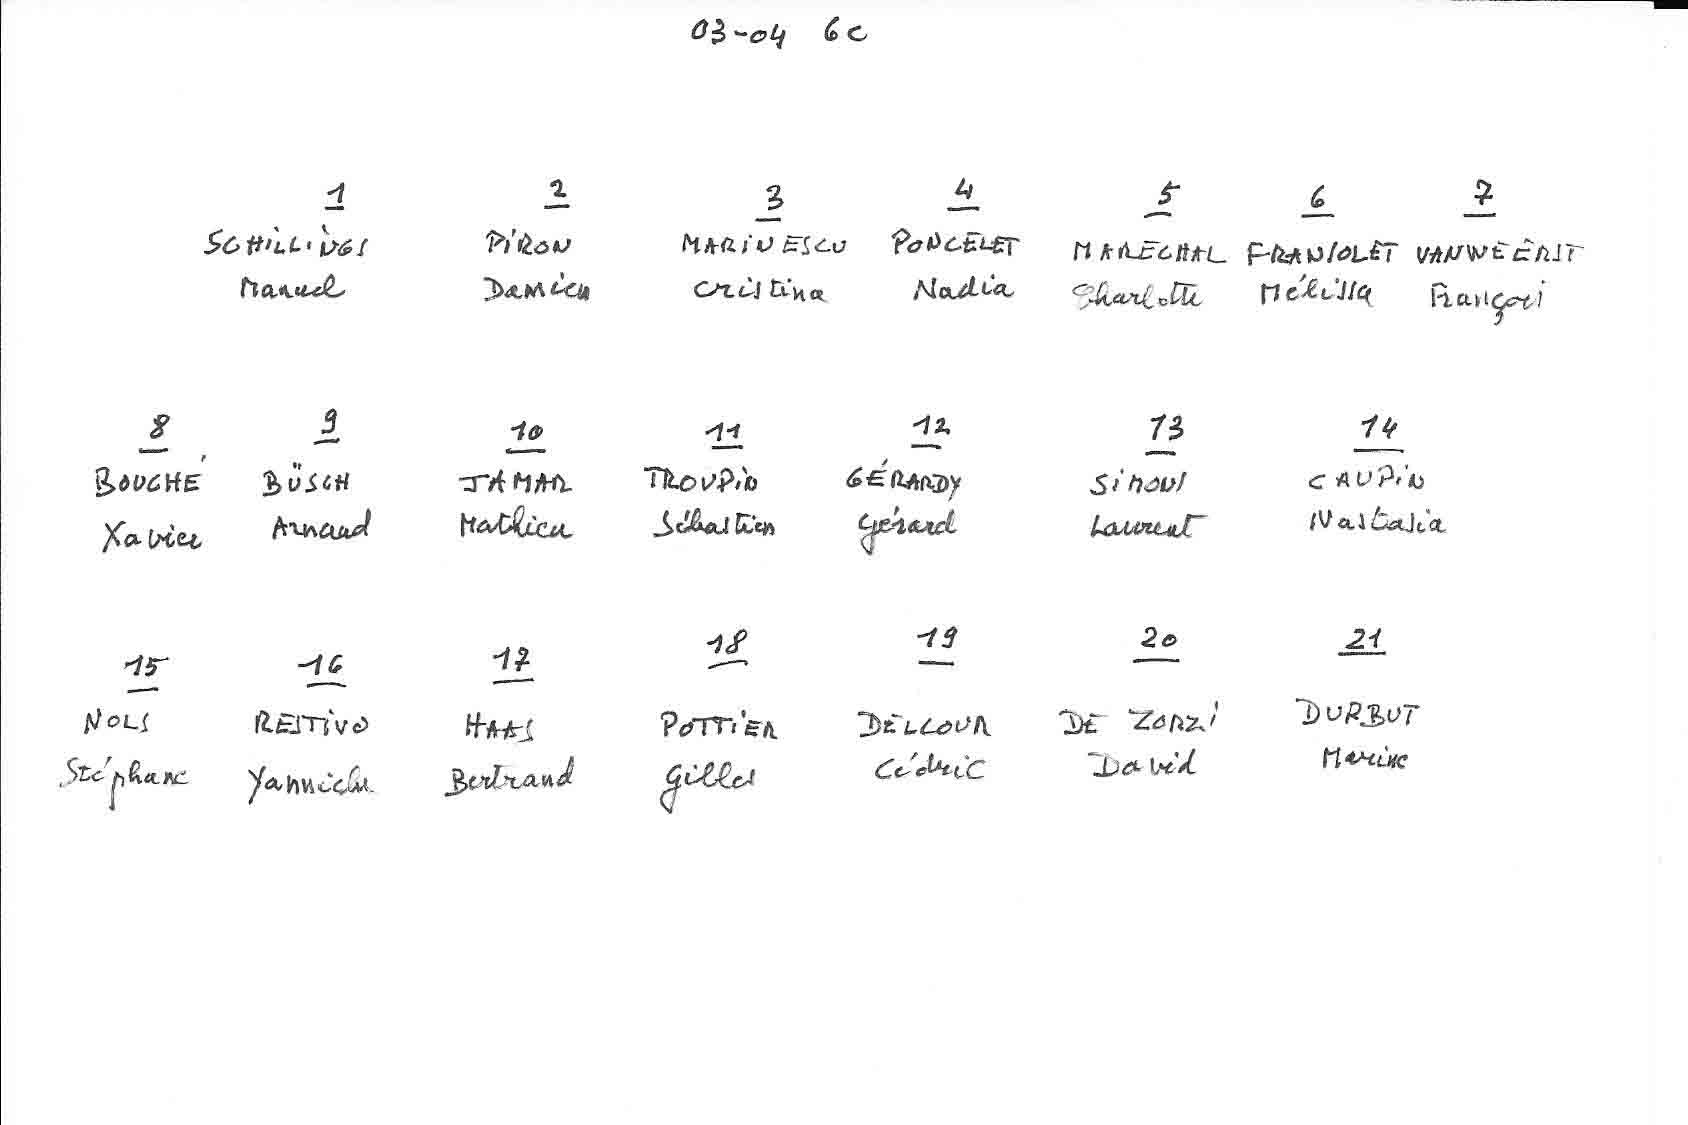 03-04 6C
1 2 3 4 5 6 7
SCHILLINGS PIRON MARINESCU PONCELET MARECHAL FRANSOLET VANWEERST
Manuel Damien Cristina Nadia Charlotte Mélissa François
8 9 10 11 12 13 14
BOUCHÉ BÜSCH JAMAR TROUPIN GÉRARDY SIMONS CAUPIN
Xavier Arnaud Mathieu Sébastien Gérard Laurent Nastasia
15 16 17 18 19 20 21
NOLS RESTIVO HAAS POTTIER DELCOUR DE ZORZI DURBUT
Stéphane Yannick Bertrand Gilles Cédric David Marine